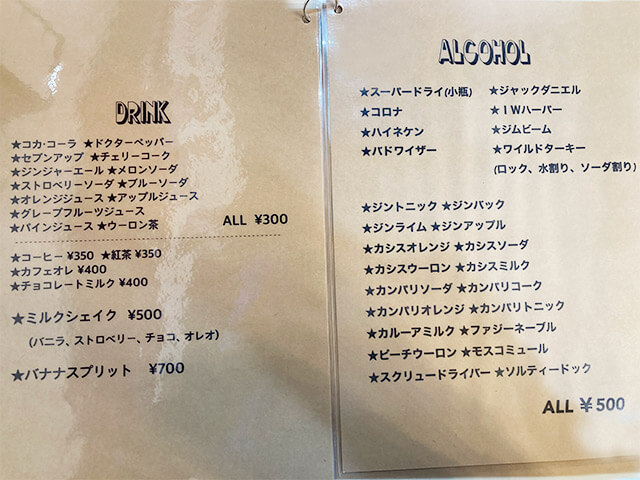 DRINK
★コカ・コーラ ★ドクターペッパー
★セブンアップ ★チェリーコーク
★ジンジャーエール ★メロンソーダ
★ストロベリーソーダ ★ブルーソーダ
★オレンジジュース ★アップルジュース
★グレープフルーツジュース
★パインジュース ★ウーロン茶
ALL ¥300
★コーヒー ¥350 ★紅茶 ¥350
★カフェオレ ¥400
★チョコレートミルク ¥400
★ミルクシェイク ¥500
(バニラ、ストロベリー、チョコ、オレオ)
★バナナスプリット ¥700
ALCOHOL
★スーパードライ(小瓶) ★ジャックダニエル
★コロナ ★IWハーパー
★ハイネケン ★ジムビーム
★バドワイザー ★ワイルドターキー
(ロック、水割り、ソーダ割り)
★ジントニック ★ジンバック
★ジンライム ★ジンアップル
★カシスオレンジ ★カシスソーダ
★カシスウーロン ★カシスミルク
★カンパリソーダ ★カンパリコーク
★カンパリオレンジ ★カンパリトニック
★カルーアミルク ★ファジーネーブル
★ピーチウーロン ★モスコミュール
★スクリュードライバー ★ソルティードック
ALL ¥500